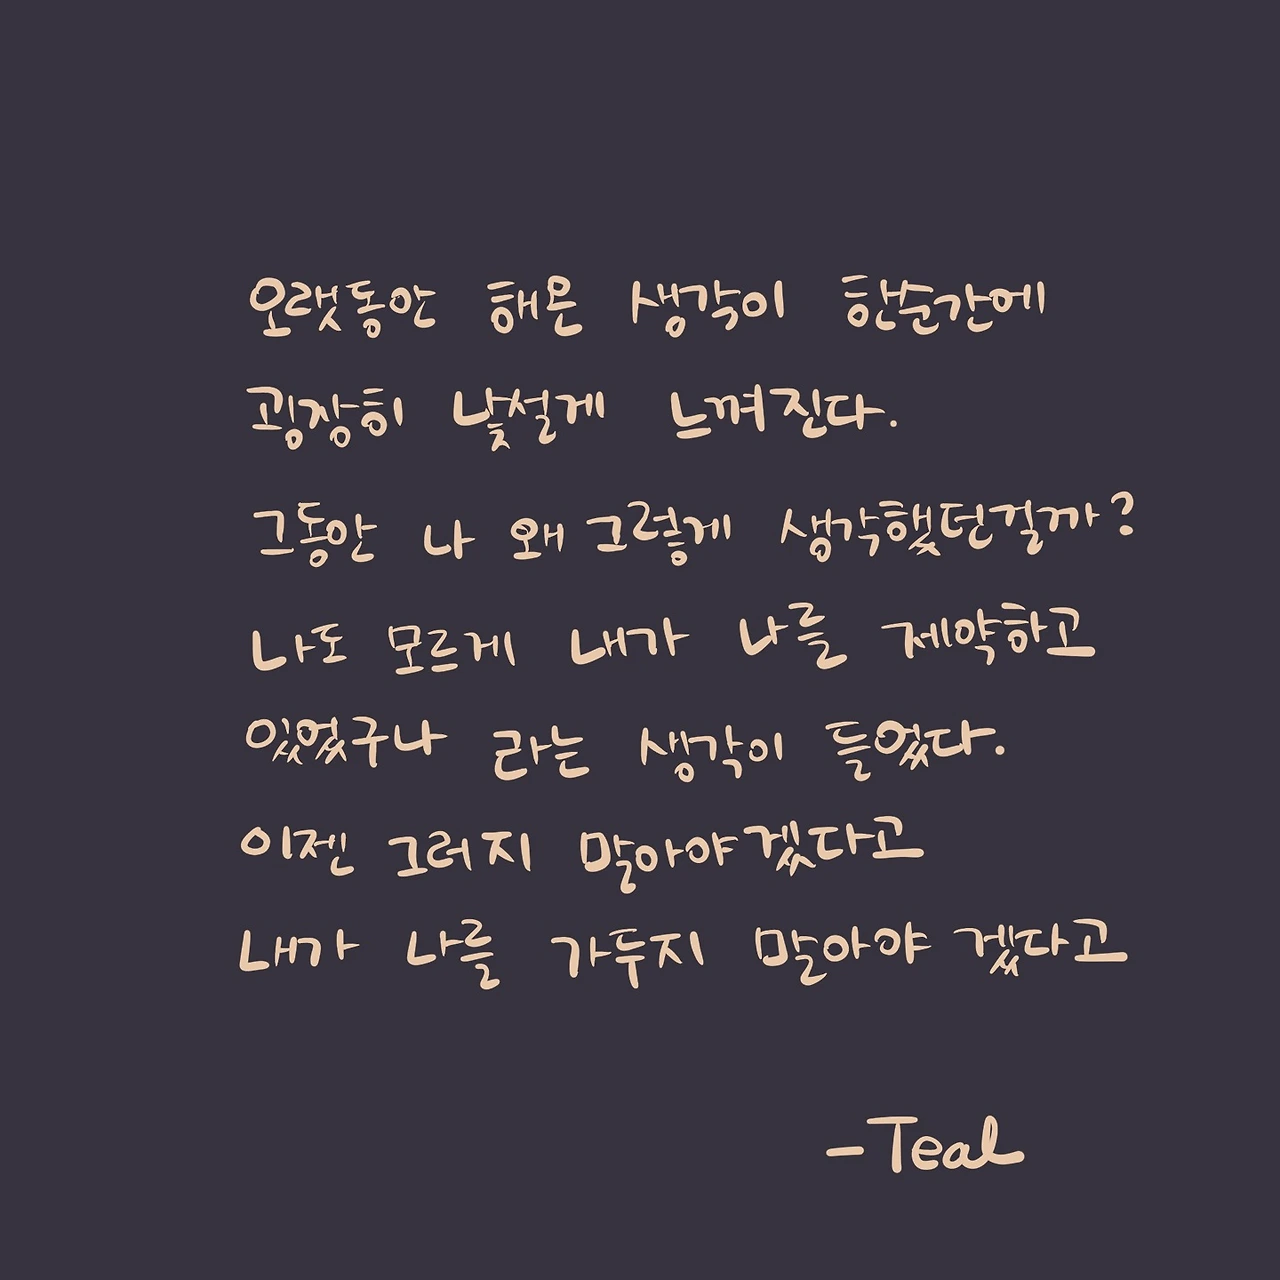 오랫동안 해온 생각이 한순간에
굉장히 낯설게 느껴진다.
그동안 나 왜 그렇게 생각했던걸까?
나도 모르게 내가 나를 제약하고
있었구나 라는 생각이 들었다.
이젠 그러지 말아야겠다고
내가 나를 가두지 말아야 겠다고
-Teal